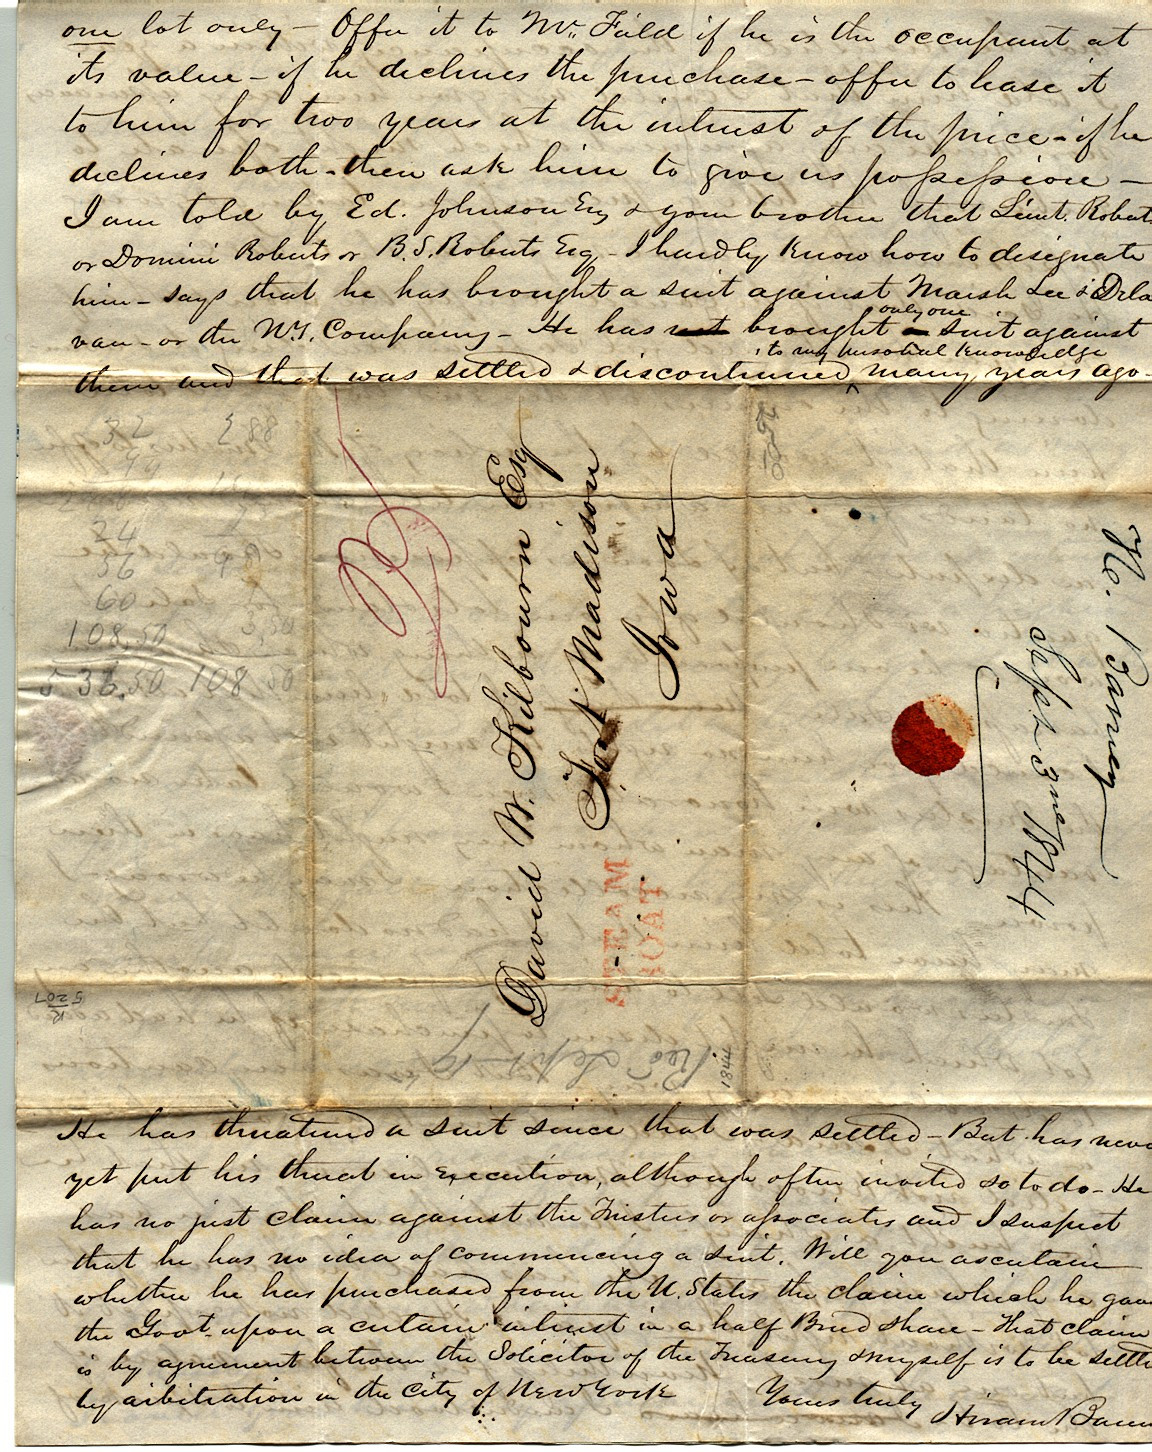 one lot only - Offer it to Mr. Field if he is the occupant at
its value - if he declines the purchase - offer to lease it
to him for two years at the interest of the price - if he
declines both - then ask him to give us possession -
I am told by Ed. Johnson Esq & your brother that Lieut. Robert
or Domini Roberts or B.S. Roberts Esq - I hardly know how to designate
him - says that he has brought a suit against Marsh Lee & Dela
van - or the N.Y. Company - He has not brought a only one suit against
them and that was settled & discontinued, to my personal knowledge many years ago -
32 288
99
24
36 98
60
108,50 3,50
536,50 108 50
David W. Kilbourn Esq
Fort Madison
Iowa
STEAM
BOAT
H. Barney
Sept. 3rd 1844
Recd Sept 19
1844
K
5207
He has threatened a suit since that was settled - But has neve
yet put his threat in execution, although often invited so to do - He
has no just claim against the Trustees or associates and I suspect
that he has no idea of commencing a suit. Will you ascertain
whether he has purchased from the U. States the claim which he gave
the Govt. upon a certain interest in a half Breed share - that claim
is by agreement between the Solicitor of the Treasury & myself is to be settle
by arbitration in the City of New York Yours truly Hiram Barn